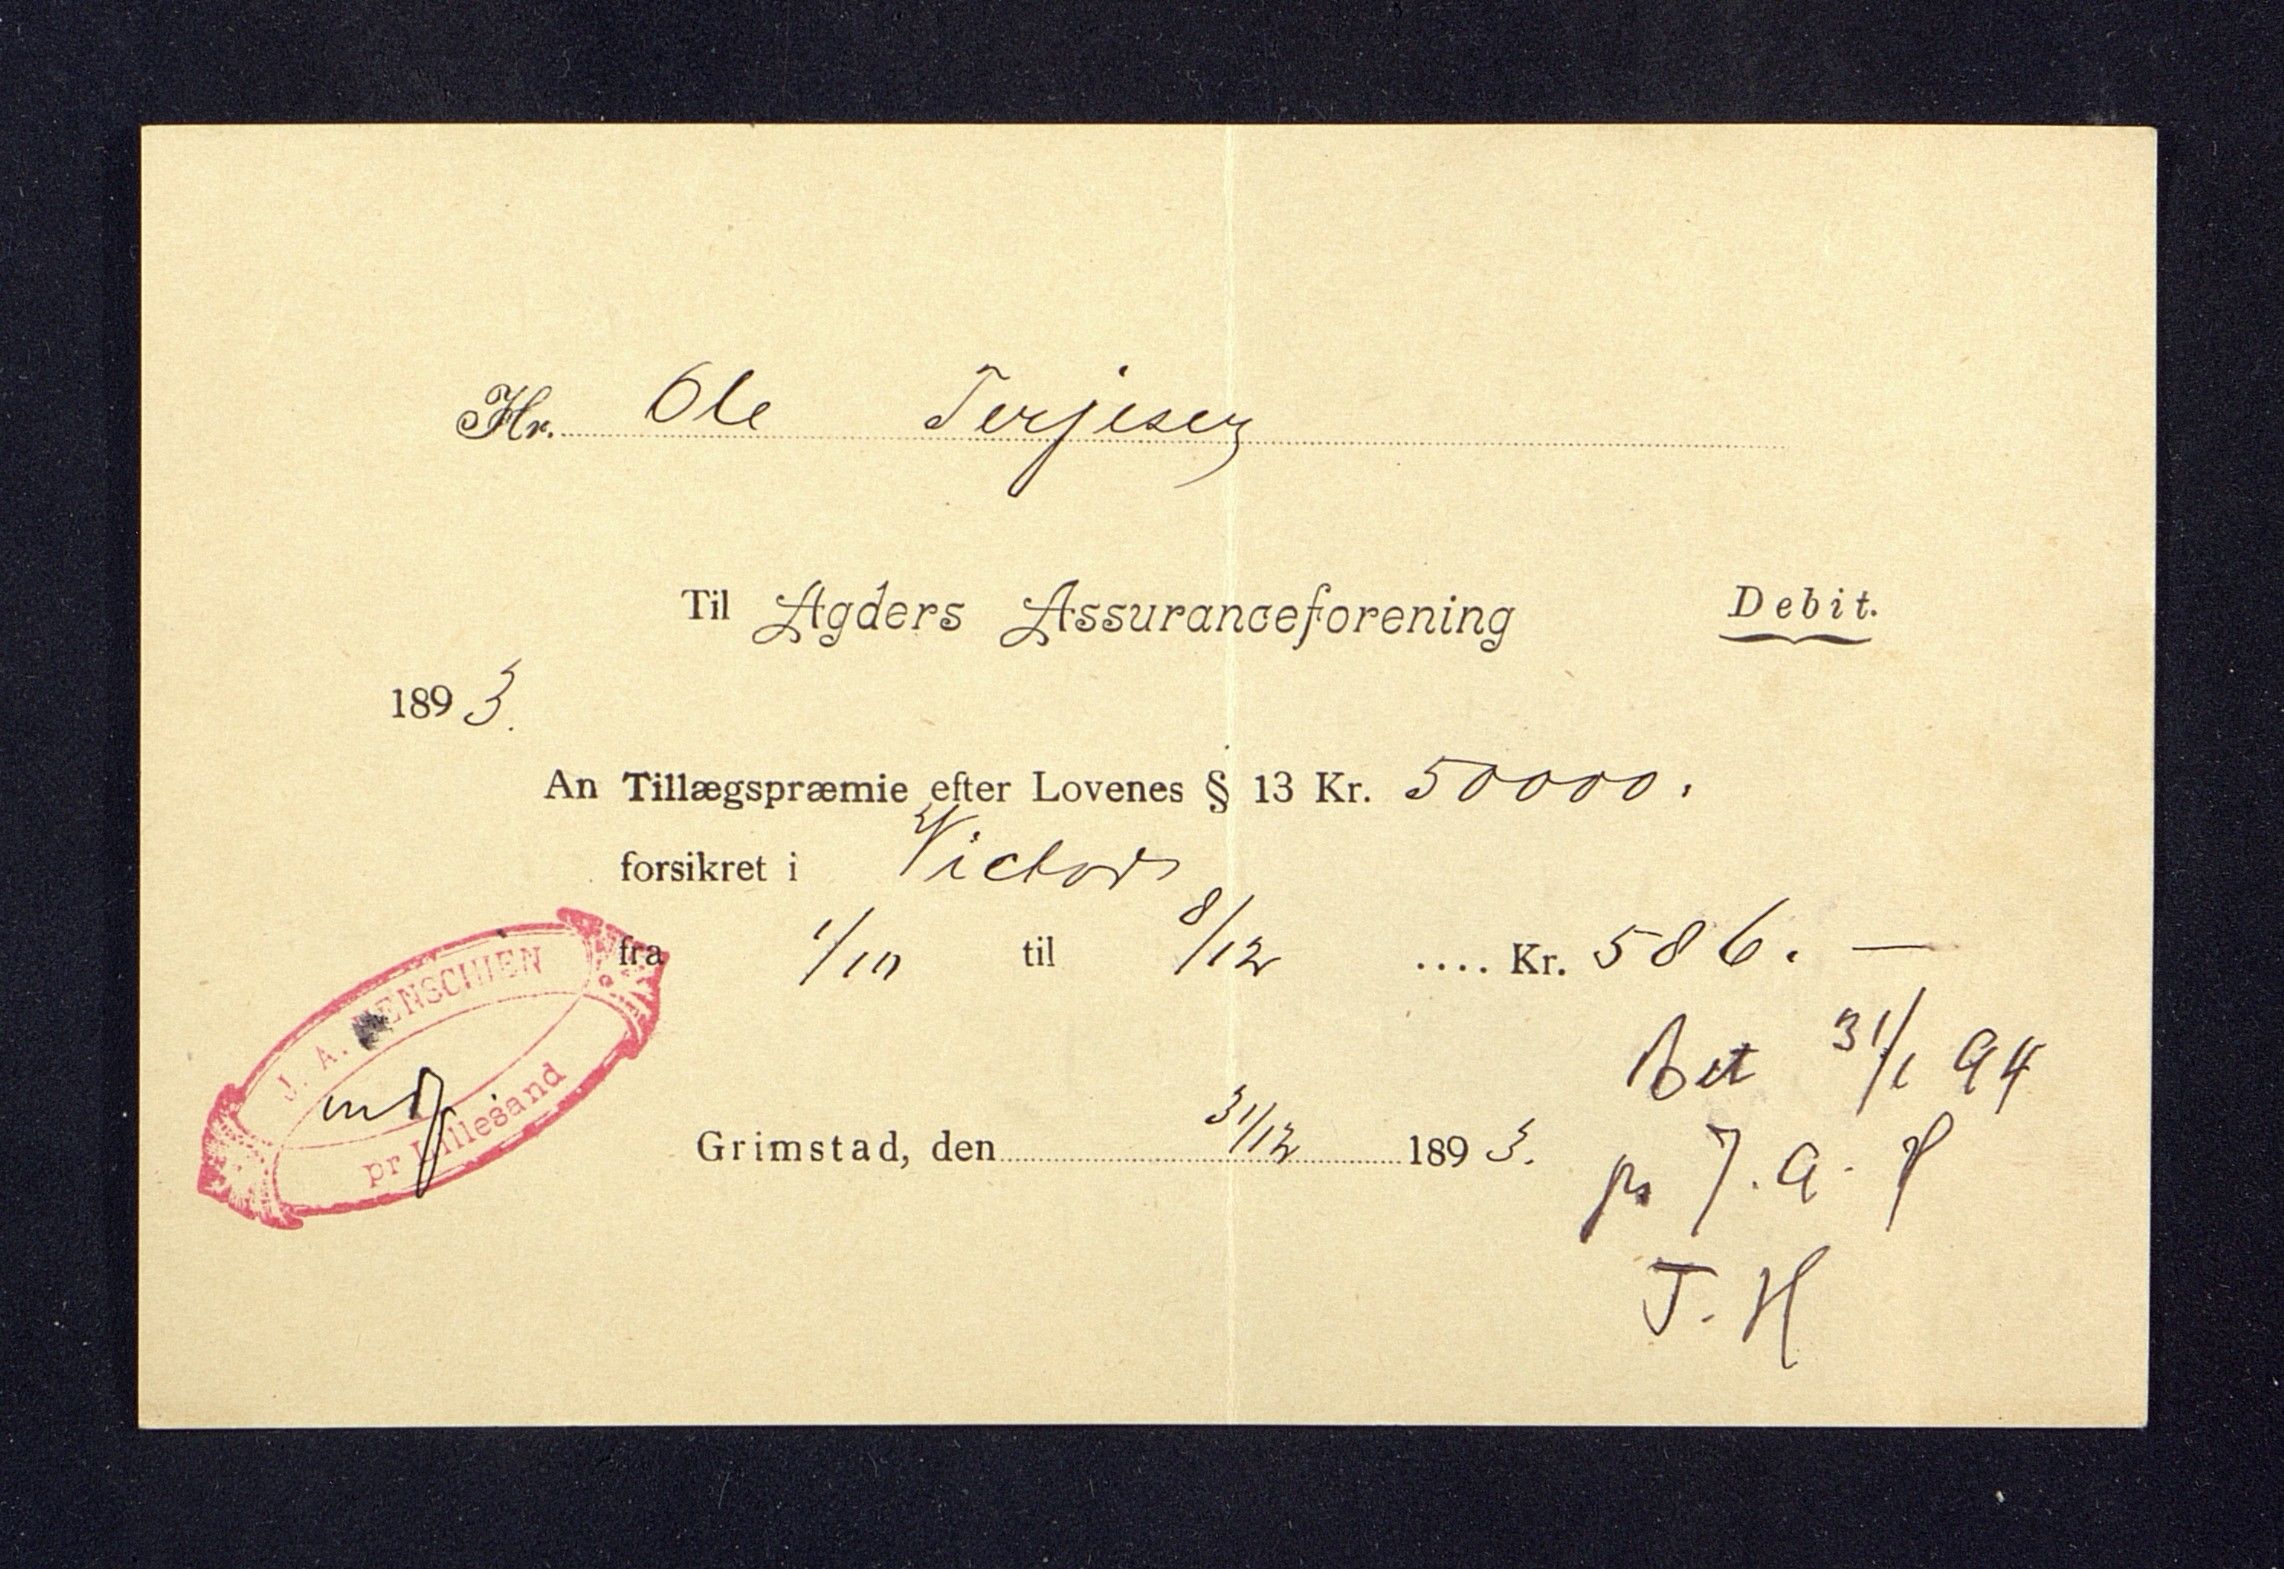 Hr. Ole Terjesen
Til Agders Assuranceforening Debit.
1893.
An Tillægspræmie efter Lovenes § 13 Kr. 50000.
forsikret i Victor
fra 1/10 til 8/12 .... Kr. 586. —
J. A. HENSCHIEN
pr Lillesand
Bet 31/1 94
Grimstad, den 31/12 1893.
pr J. A. H
J. H